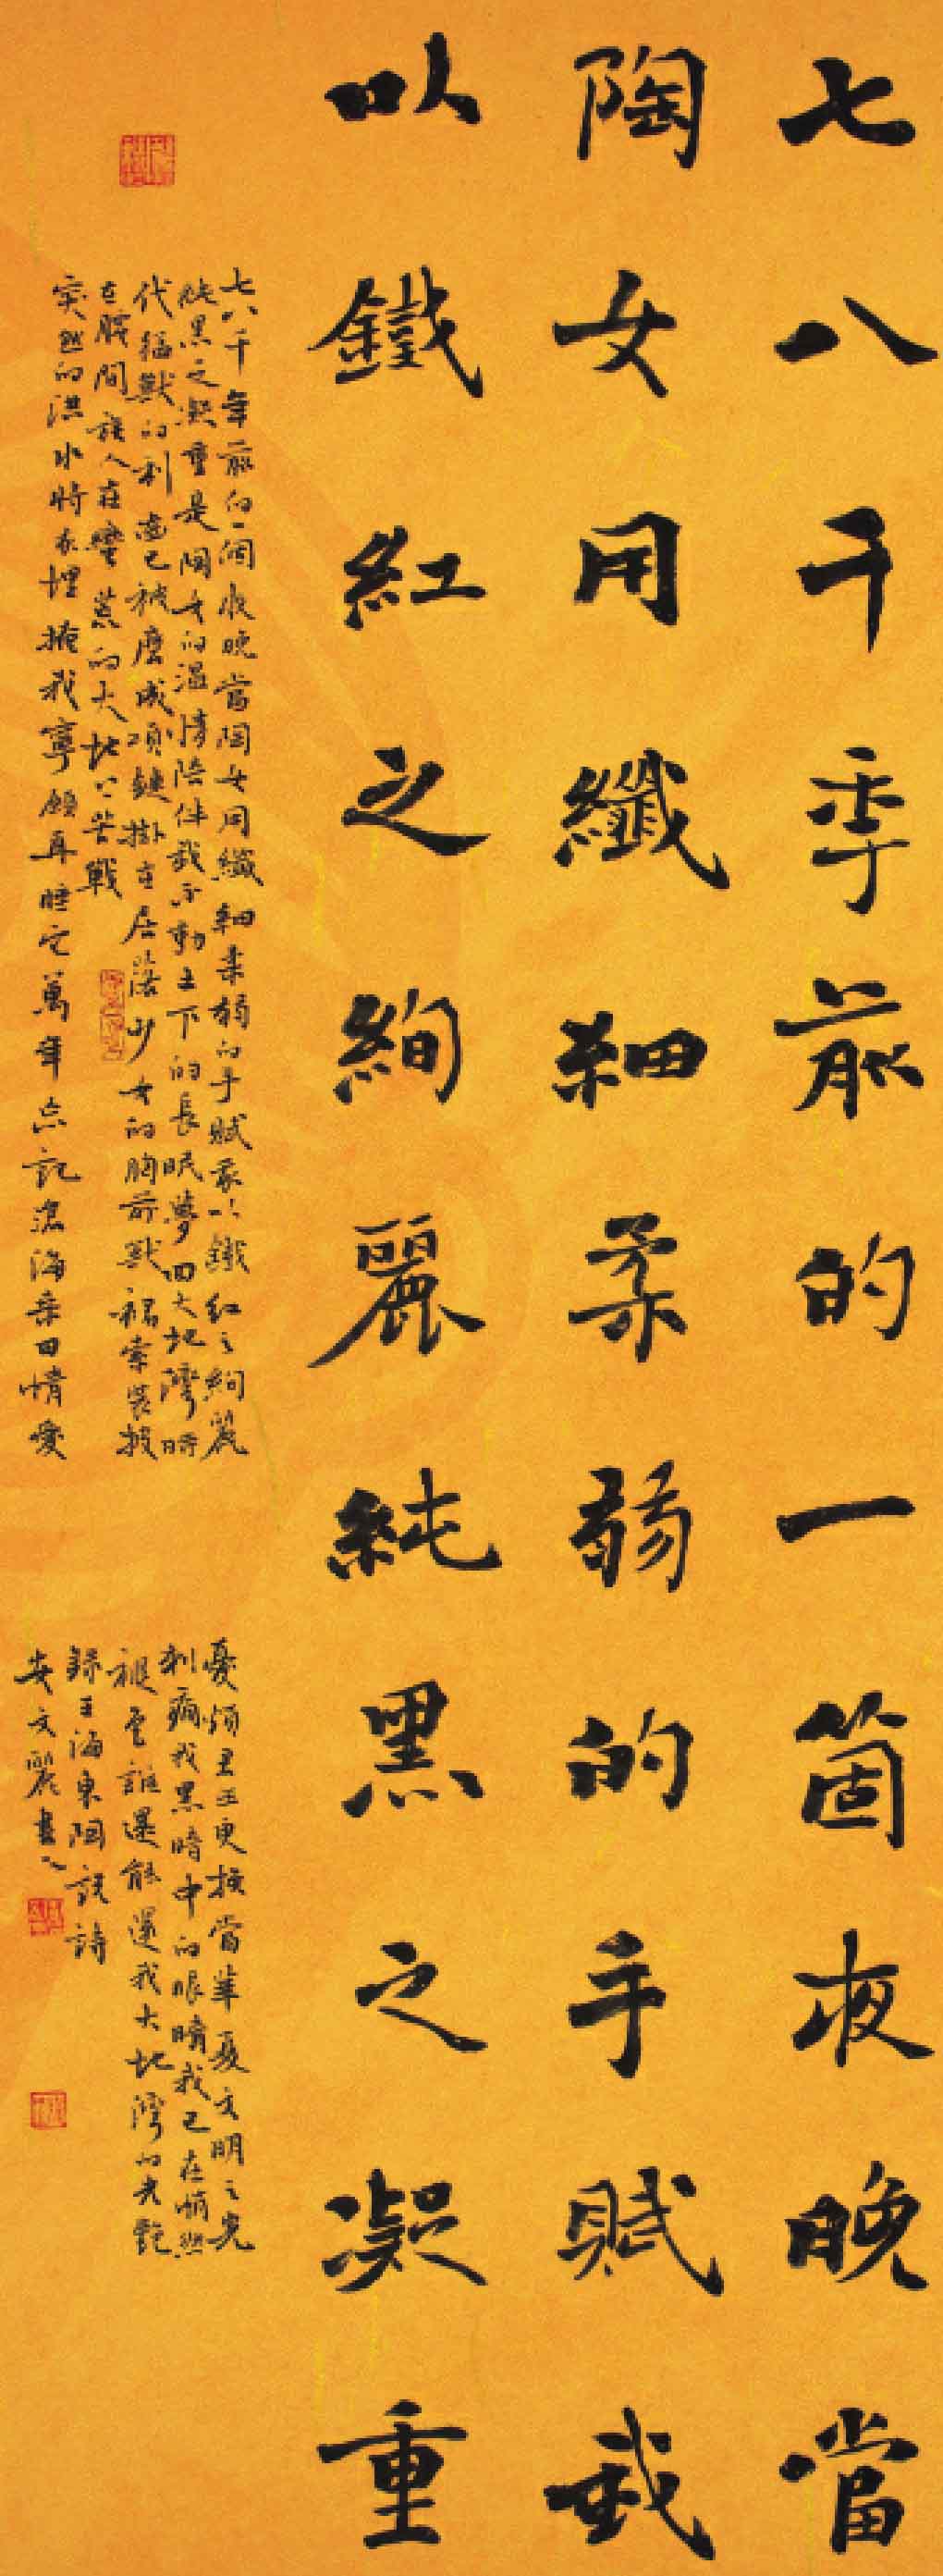 七八千季前的一箇夜晚當
陶女用纖細柔弱的手賦我
以鐵紅之絢麗純黑之凝重
七八千年前的一個夜晚當陶女用纖細柔弱的手賦我以鐵紅之絢麗
純黑之凝重是陶女的温情陪伴我不動土下的長眠夢回大地灣時
代猛獸的利齒已被磨成項鏈掛在居落少女的胸前獸裙索裝披
在腰間族人在蠻荒的大地上苦戰
突然的洪水將我埋掩我寧願再睡它萬年忘記滄海桑田情愛
憂煩君王更換當華夏文明之光
刺痛我黑暗中的眼睛我已在悄然
褪色誰還能還我大地灣的光艷
錄王海東陶說詩
安文麗書之